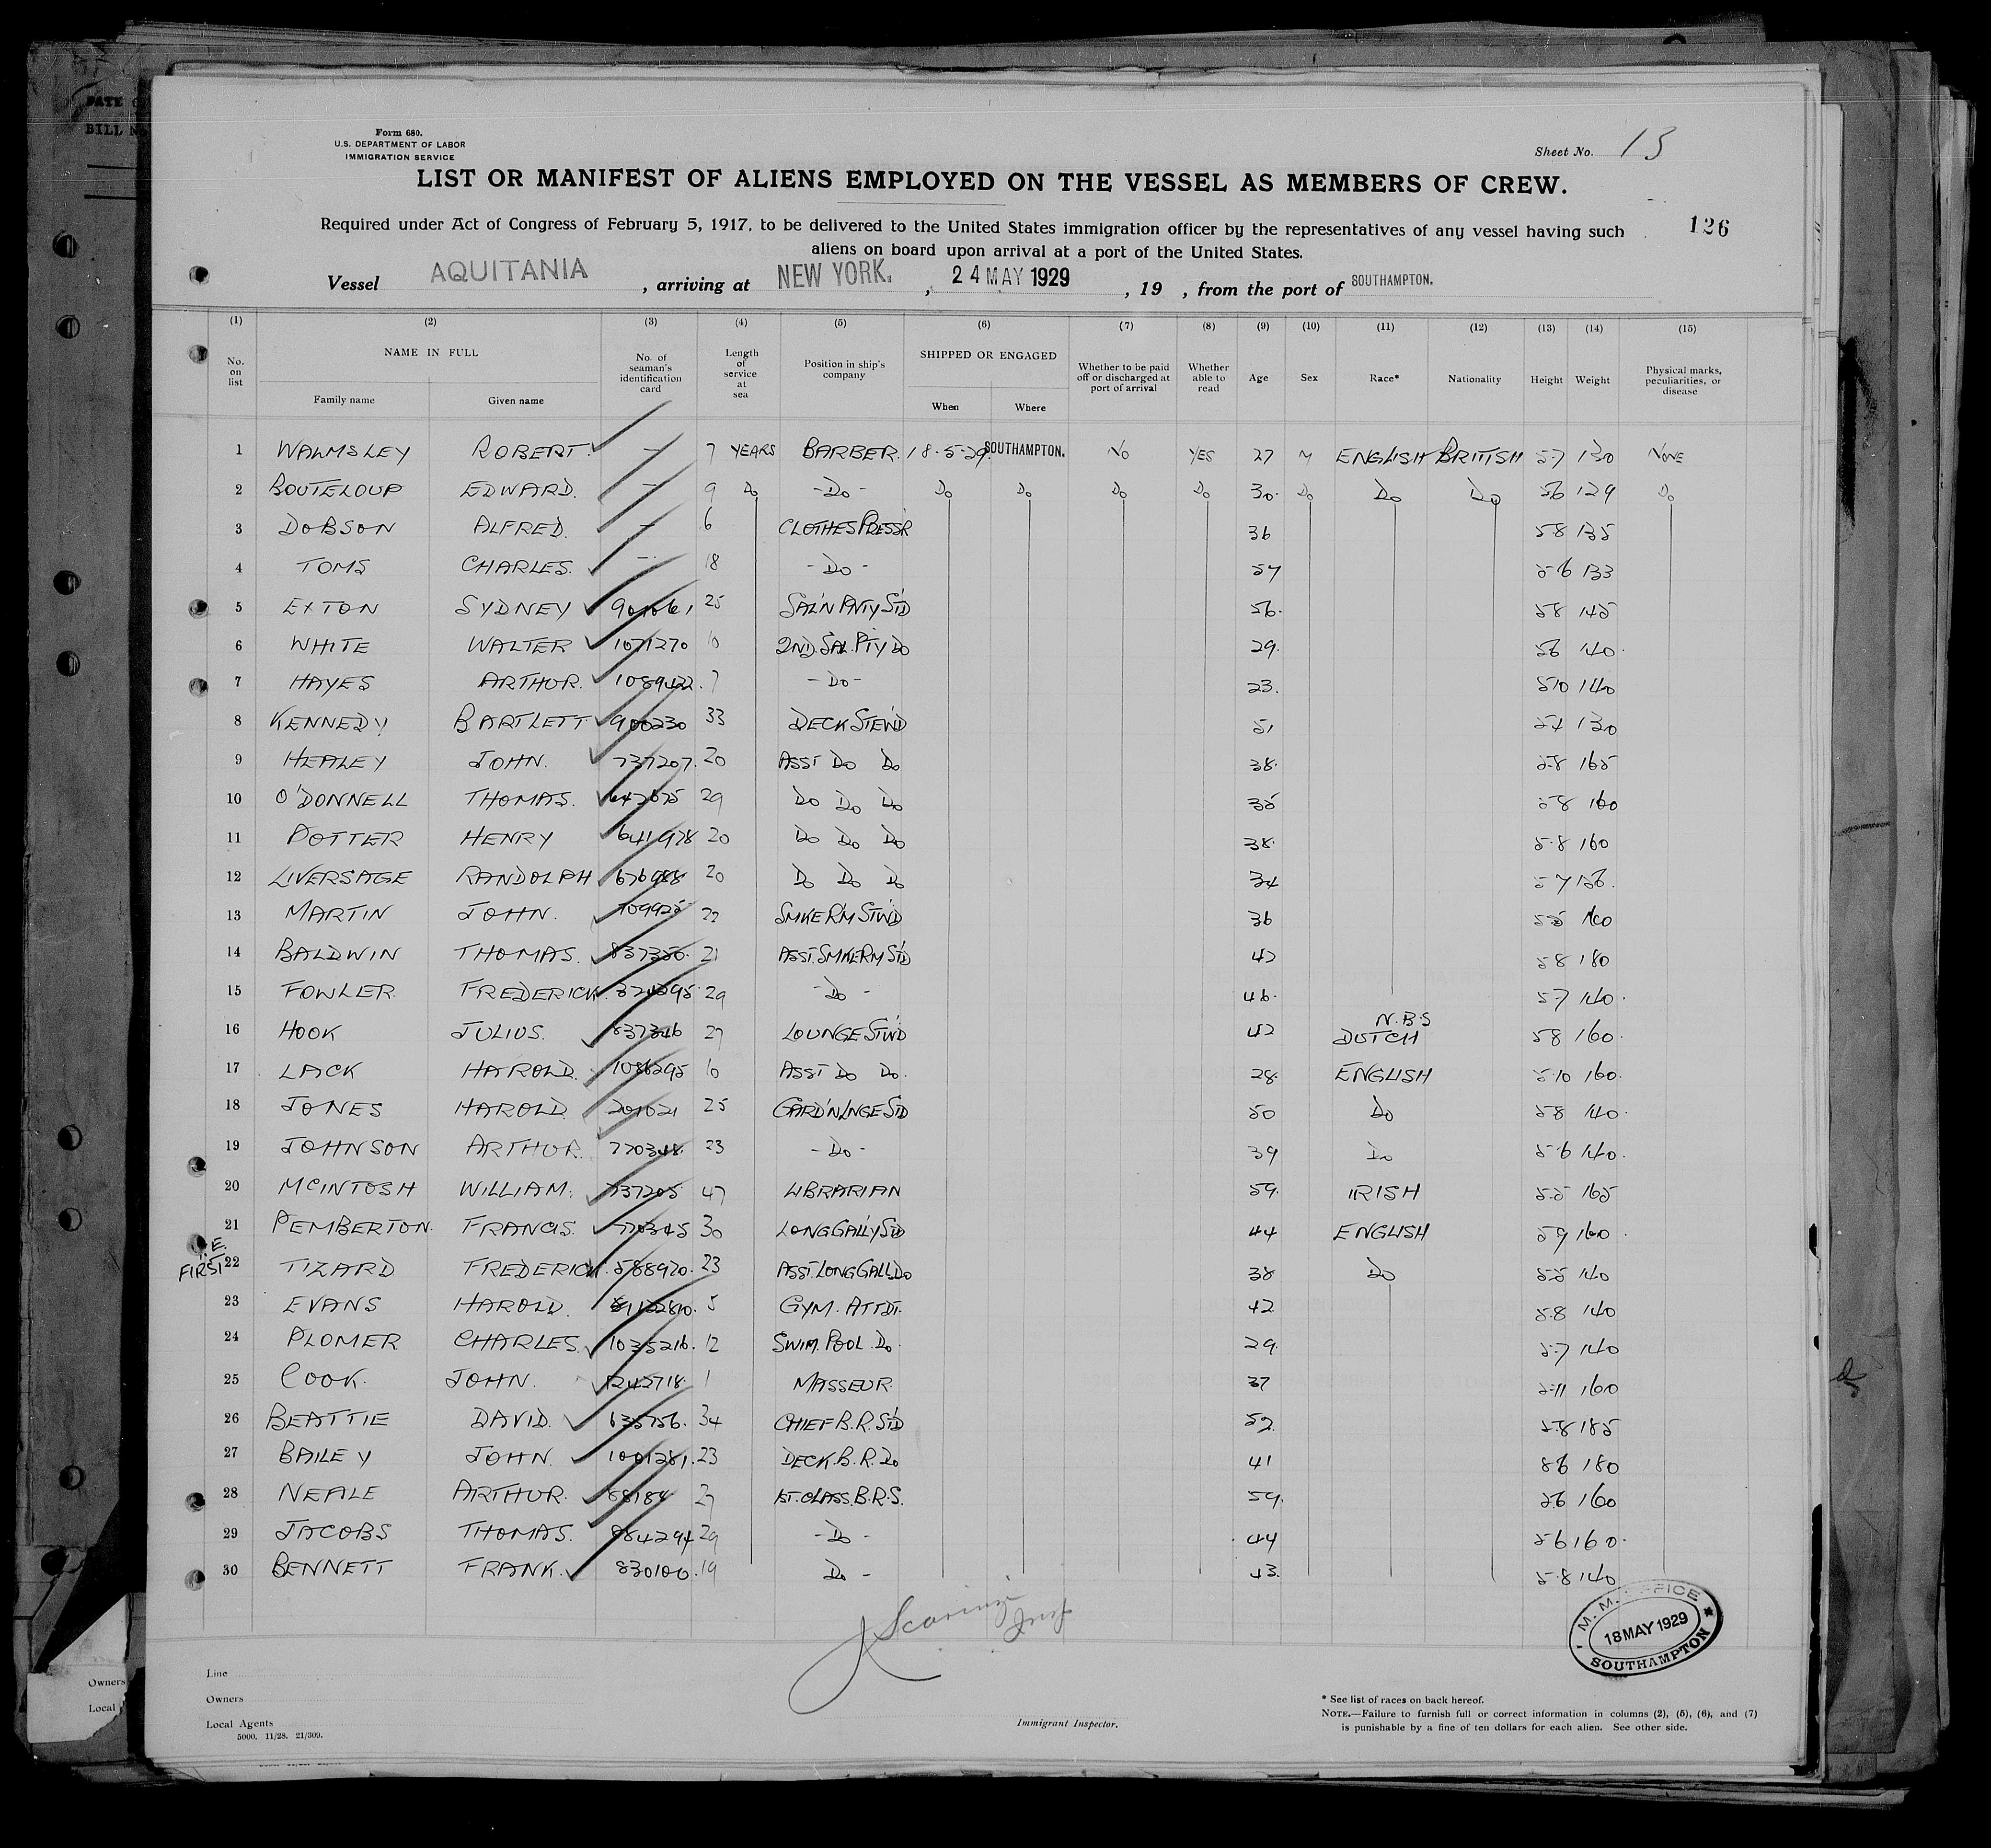 DATE O
BILL No
Form 680.
U.S. DEPARTMENT OF LABOR
IMMIGRATION SERVICE
Sheet No. 13
LIST OR MANIFEST OF ALIENS EMPLOYED ON THE VESSEL AS MEMBERS OF CREW.
Required under Act of Congress of February 5, 1917, to be delivered to the United States immigration officer by the representatives of any vessel having such
aliens on board upon arrival at a port of the United States.
126
Vessel AQUITANIA , arriving at NEW YORK. , 24 MAY 1929 , 19 , from the port of SOUTHAMPTON.
(1) (2) (3) (4) (5) (6) (7) (8) (9) (10) (11) (12) (13) (14) (15)
No. on list NAME IN FULL Family name Given name No. of seaman's identification card Length of service at sea Position in ship's company SHIPPED OR ENGAGED When Where Whether to be paid off or discharged at port of arrival Whether able to read Age Sex Race* Nationality Height Weight Physical marks, peculiarities, or disease
1 WALMSLEY ROBERT. — 7 YEARS BARBER. 18-5-29 SOUTHAMPTON. No YES 27 M ENGLISH BRITISH 5-7 130 NONE
2 BOUTELOUP EDWARD. — 9 Do -Do- Do Do Do Do 30. Do Do Do 56 129 Do
3 DOBSON ALFRED. — 6 CLOTHES PRESS'R 36 5-8 135
4 TOMS CHARLES. — 18 -Do- 57 5-6 133
5 EXTON SYDNEY 25 SAL'N PNTY S'D 56. 58 145
6 WHITE WALTER 1071270 10 2ND. SAL. P'TY Do 29. 56 140.
7 HAYES ARTHUR. 1089422. 7 -Do- 23. 5-10 140
8 KENNEDY BARTLETT 900230 33 DECK STEW'D 51 5-4 130
9 HEALEY JOHN. 737207. 20 ASST Do Do 38. 5-8 165
10 O'DONNELL THOMAS. 29 Do Do Do 35 5-8 160
11 POTTER HENRY 641978 20 Do Do Do 38. 5-8 160
12 LIVERSAGE RANDOLPH 676988 20 Do Do Do 34 5-7 156.
13 MARTIN JOHN. 709925 22 SMKE R'M STW'D 36 5-5
14 BALDWIN THOMAS. 837350. 21 ASST. SMKE RM S'D 47 5-8 180
15 FOWLER FREDERICK. 29 -Do- 46. 5-7 140.
16 HOOK JULIUS. 837346 27 LOUNGE STW'D 42 N.B.S DUTCH 58 160.
17 LACK HAROLD. 1086295 10 ASST Do Do. 28. ENGLISH 5-10 160.
18 JONES HAROLD. 201021 25 GARD'N LNGE S'D 50 Do 58 140.
19 JOHNSON ARTHUR. 770348. 23 -Do- 39 Do 5-6 140.
20 McINTOSH WILLIAM. 737205 47 LIBRARIAN 59. IRISH 5-5 165
21 PEMBERTON. FRANCIS. 770345 30 LONG GAL'Y S'D 44 ENGLISH 59 160.
FIRST 22 TIZARD FREDERICK. 588920. 23 ASST. LONG GALL. Do 38 Do 5-5 140
23 EVANS HAROLD. 5 GYM. ATTDT. 42 5-8 140
24 PLOMER CHARLES. 1035216. 12 SWIM. POOL. Do. 29. 5-7 140
25 COOK. JOHN. 1242718. 1 MASSEUR. 37 5-11 160
26 BEATTIE DAVID. 635756. 34 CHIEF B.R. S'D 52. 5-8 185
27 BAILEY JOHN. 1001281. 23 DECK. B.R. Do 41 86 180
28 NEALE ARTHUR. 27 1ST. CLASS. B.R.S. 59. 56 160
29 JACOBS THOMAS. 884294 29 -Do- 44 56 160.
30 BENNETT FRANK. 830100. 19 Do - 43. 5-8 140
M. M. OFFICE
18 MAY 1929
SOUTHAMPTON
Line
Owners
Local Agents
5000. 11/28. 21/309.
Immigrant Inspector.
* See list of races on back hereof.
NOTE.—Failure to furnish full or correct information in columns (2), (5), (6), and (7)
is punishable by a fine of ten dollars for each alien. See other side.
Owners
Local